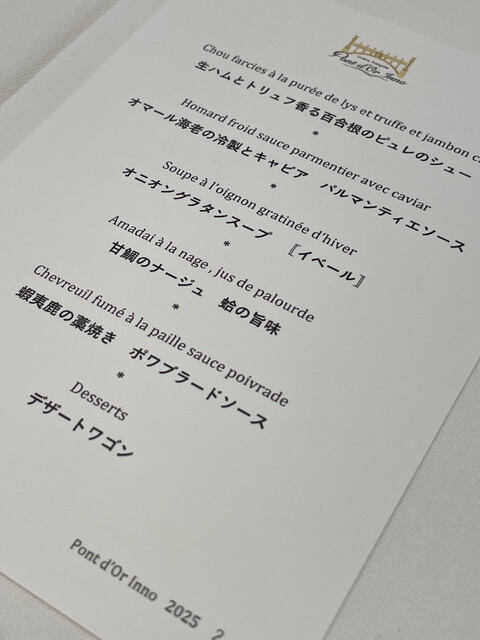 Pont d'Or Inno
Chou farcies à la purée de lys et truffe et jambon
生ハムとトリュフ香る百合根のピュレのシュー
*
Homard froid sauce parmentier avec caviar
オマール海老の冷製とキャビア パルマンティエソース
*
Soupe à l'oignon gratinée d'hiver
オニオングラタンスープ 『イベール』
*
Amadai à la nage, jus de palourde
甘鯛のナージュ 蛤の旨味
*
Chevreuil fumé à la paille sauce poivrade
蝦夷鹿の藁焼き ポワブラードソース
*
Desserts
デザートワゴン
Pont d'Or Inno 2025 2